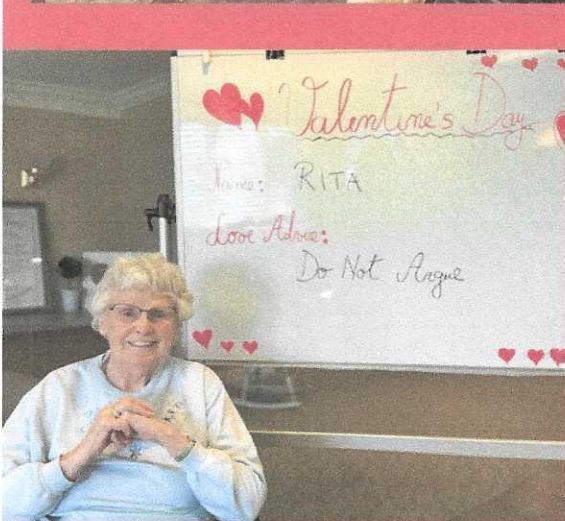 Valentine's Day
Name: RITA
Love Advice:
Do Not Argue